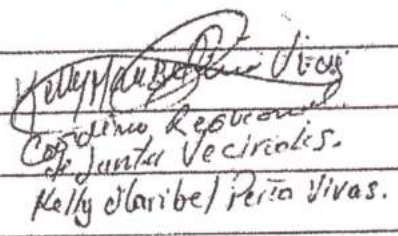 Kelly Maribel Peña Vivas
Regional
de Juntas Vecinales.
Kelly Maribel Peña Vivas.